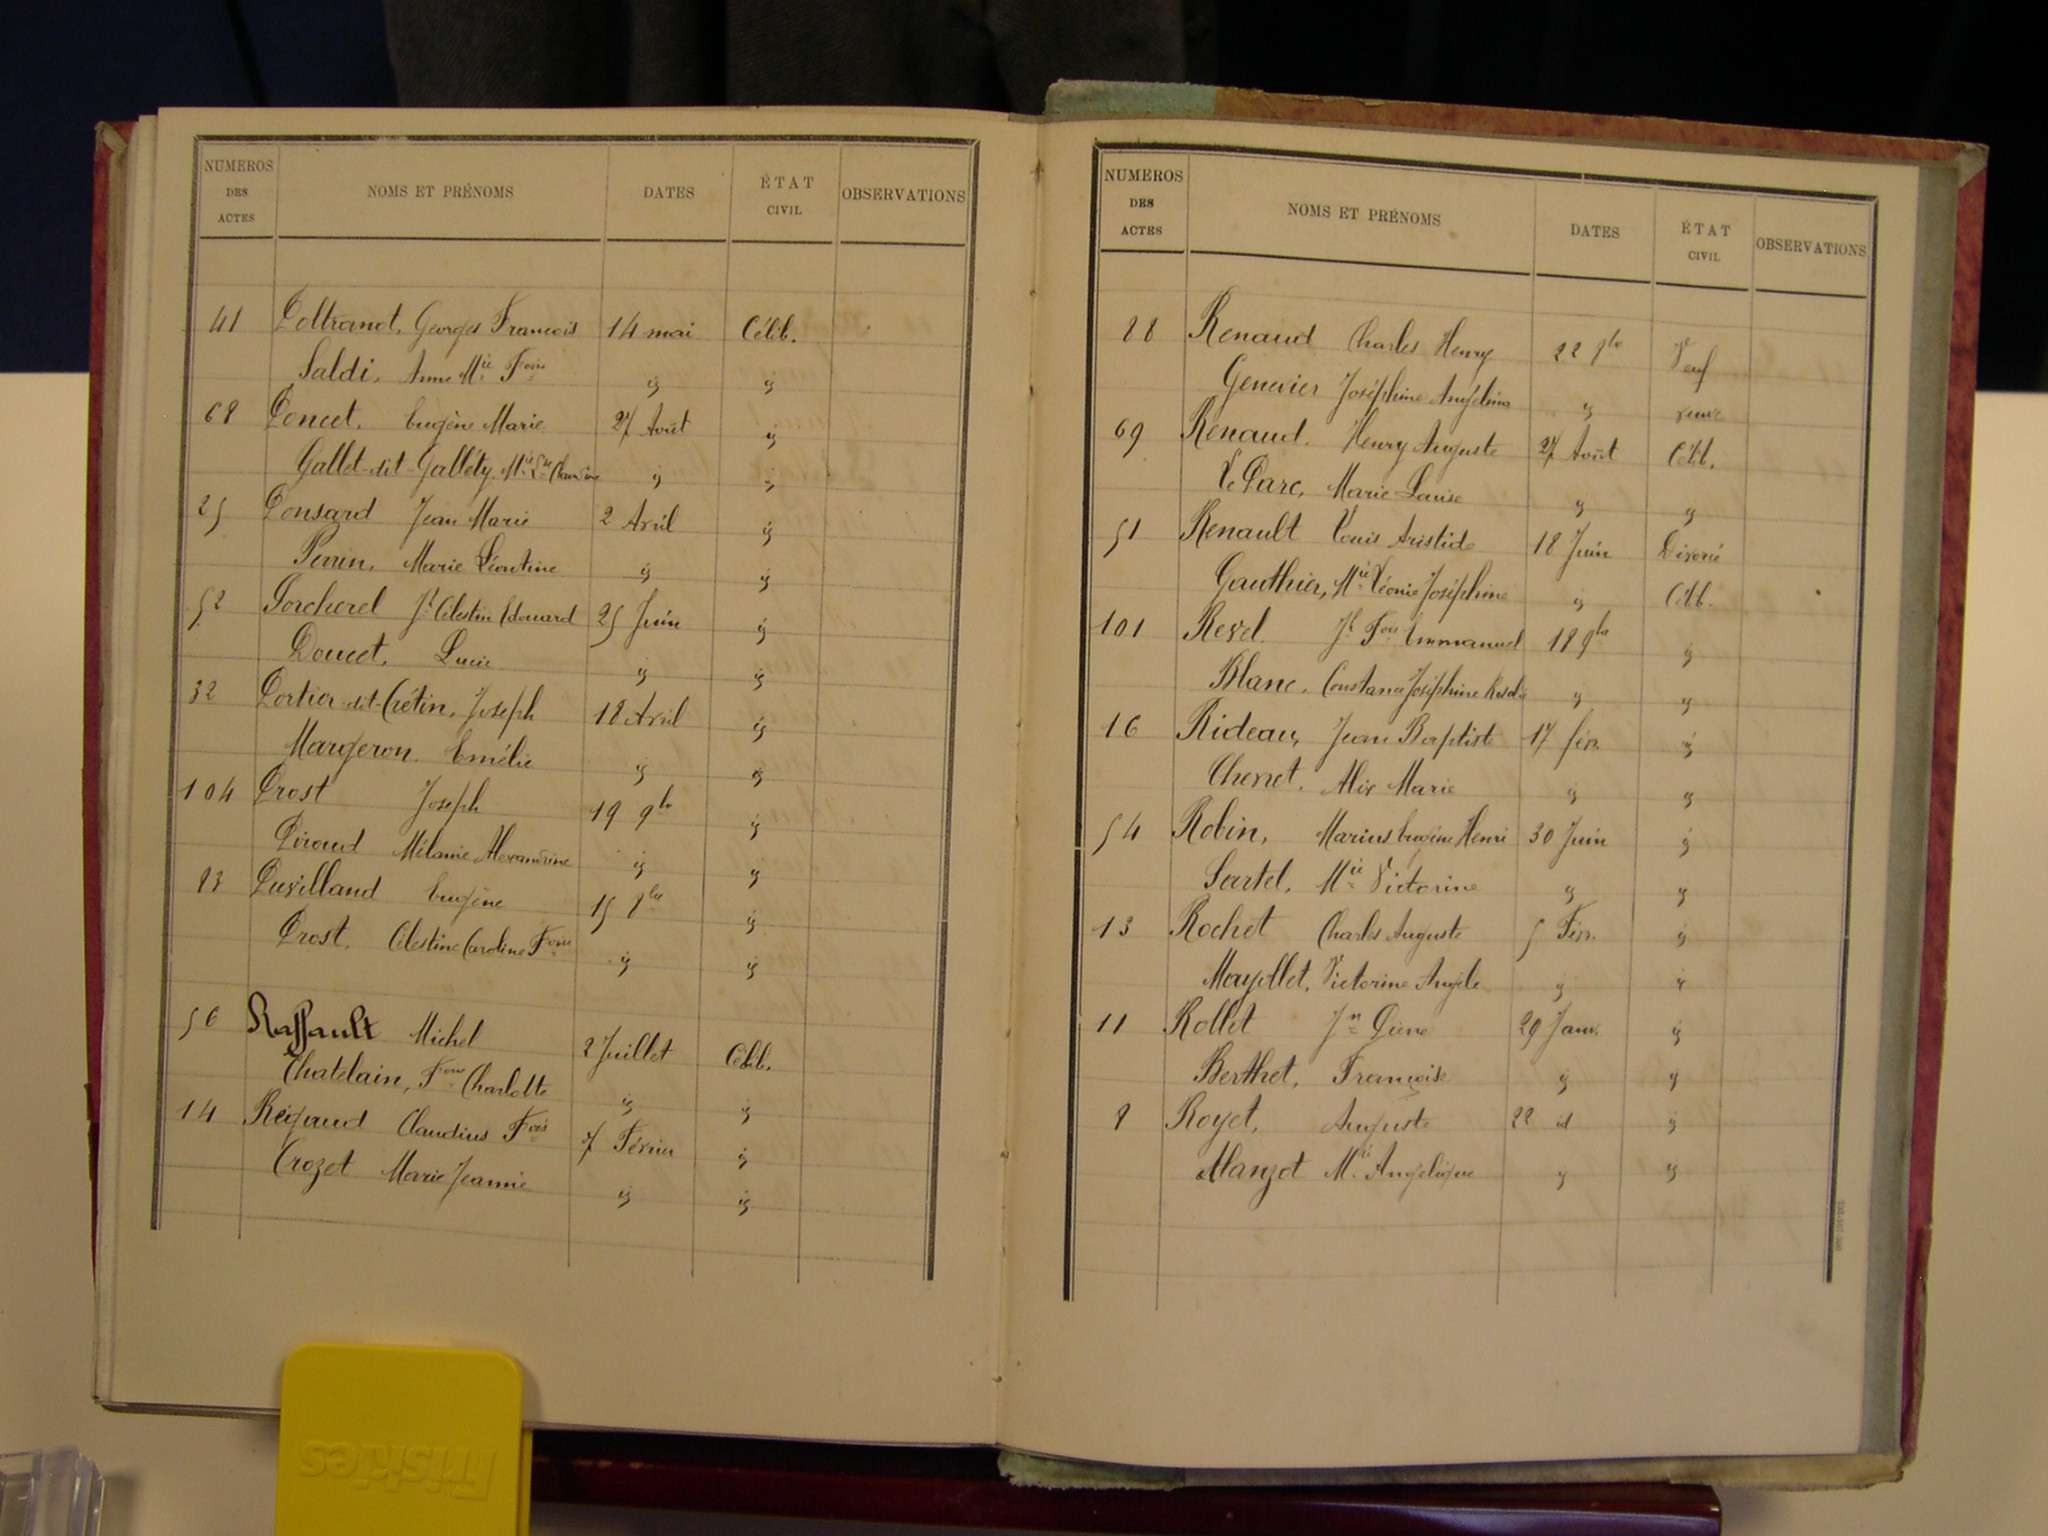 NUMEROS DES ACTES NOMS ET PRÉNOMS DATES ÉTAT CIVIL OBSERVATIONS
41 Poltranot, Georges Francois 14 mai Célib.
Saldi, Anne Mie Foise id id
68 Poncet, Eugène Marie 27 Août id
Gallet-dit-Gallety, Mie id id
25 Ponsard Jean Marie 2 Avril id
Perrin, Marie Léontine id id
52 Porcherel Jh Célestin Edouard 25 Juin id
Doucet, Lucie id id
32 Portier-dit-Crétin, Joseph 18 Avril id
Margeron Emélie id id
104 Prost Joseph 19 9bre id
Piroud Mélanie Alexandrine id id
83 Puvilland Eugène 15 8bre id
Prost, Célestine Caroline Foise id id
56 Raffault Michel 2 Juillet Célib.
Chatelain, Foise Charlotte id id
14 Régaud Claudius Fois 7 Février id
Crozet Marie Jeannie id id
NUMEROS DES ACTES NOMS ET PRÉNOMS DATES ÉTAT CIVIL OBSERVATIONS
88 Renaud Charles Henry 22 8bre Veuf
Genevier Joséphine Angélina id veuve
69 Renaud Henry Auguste 27 Août Célib.
Le Parc, Marie Louise id id
51 Renault Louis Aristide 18 Juin Divorcé
Gauthier, Mie Léonie Joséphine id Célib.
101 Revel Jh Fois Emmanuel 18 9bre id
Blanc, Constance Joséphine id id
16 Rideau, Jean Baptiste 17 fév. id
Chenet, Alix Marie id id
54 Robin, Marius Eugène Henri 30 Juin id
Sartel, Mie Victorine id id
13 Rochet Charles Auguste 5 Fév. id
Mayollet, Victorine Angèle id id
11 Rollet Jn Pierre 29 Janv. id
Berthet, Françoise id id
8 Royet, Auguste 22 id id
Manzot Mie Angelique id id
Friskies